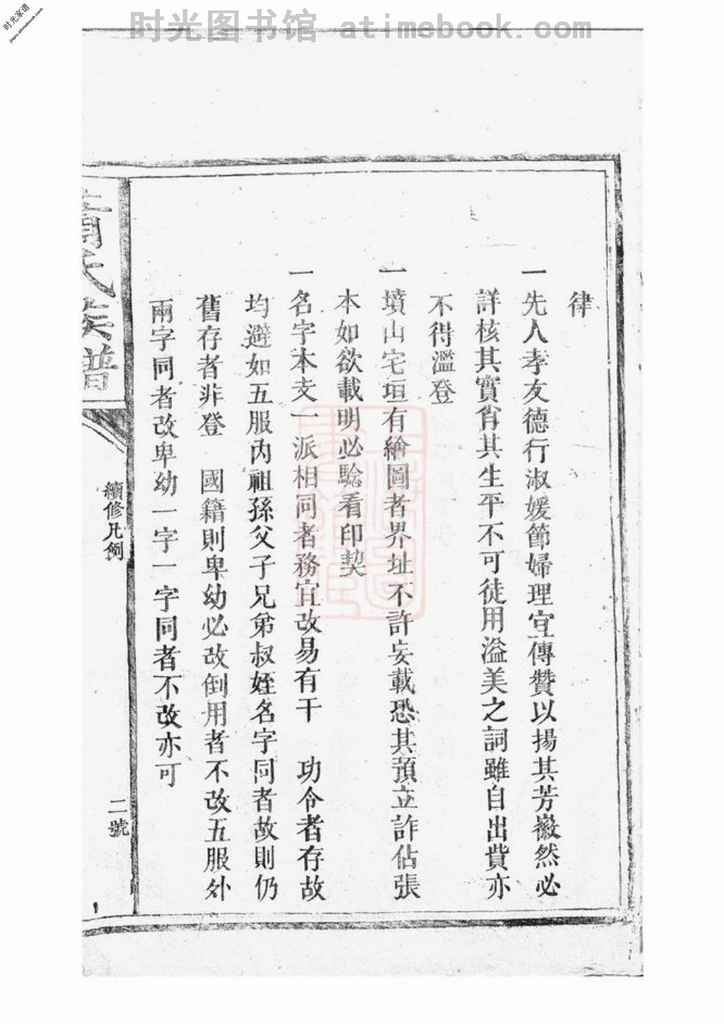 时光图书馆 atimebook.com
时光家谱
律
一先人孝友德行淑媛節婦理宜傳贊以揚其芳徽然必
詳核其實肖其生平不可徒用溢美之詞雖自出費亦
不得濫登
一墳山宅垣有繪圖者界址不許妄載恐其預立詐佔張
本如欲載明必驗看印契
一名字本支一派相同者務宜改易有干 功令者存故
均避如五服內祖孫父子兄弟叔姪名字同者故則仍
舊存者非登 國籍則卑幼必改倒用者不改五服外
兩字同者改卑幼一字一字同者不改亦可
氏族譜
續修凡例
二號